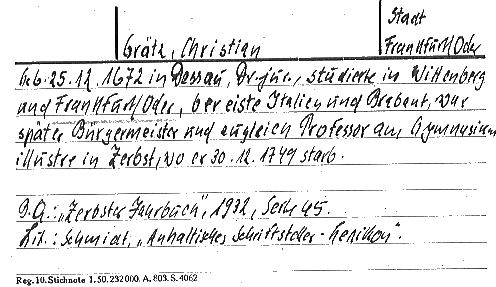 Stadt
Grätz, Christian Frankfurt/Oder
Geb. 25.12.1672 in Dessau, Dr. jur., studierte in Wittenberg
und Frankfurt/Oder, bereiste Italien und Brabant, war
später Bürgermeister und zugleich Professor am Gymnasium
illustre in Zerbst, wo er 30.12.1749 starb.
D.A.: „Zerbster Jahrbuch", 1932, Seite 45.
Lit.: Schmidt, „Anhaltisches Schriftsteller-Lexikon".
Reg. 10. Stichnote 1. 50. 232 000. A. 803. S. 4062